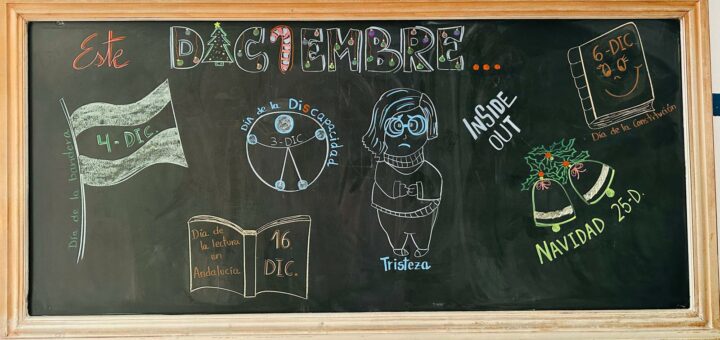 Este DICIEMBRE...
Día de la bandera
4-DIC.
Día de la Discapacidad
3-DIC
INSIDE
OUT
6-DIC.
Día de la Constitución
Día de
la lectura
en
Andalucía
16
DIC.
Tristeza
NAVIDAD 25-D.